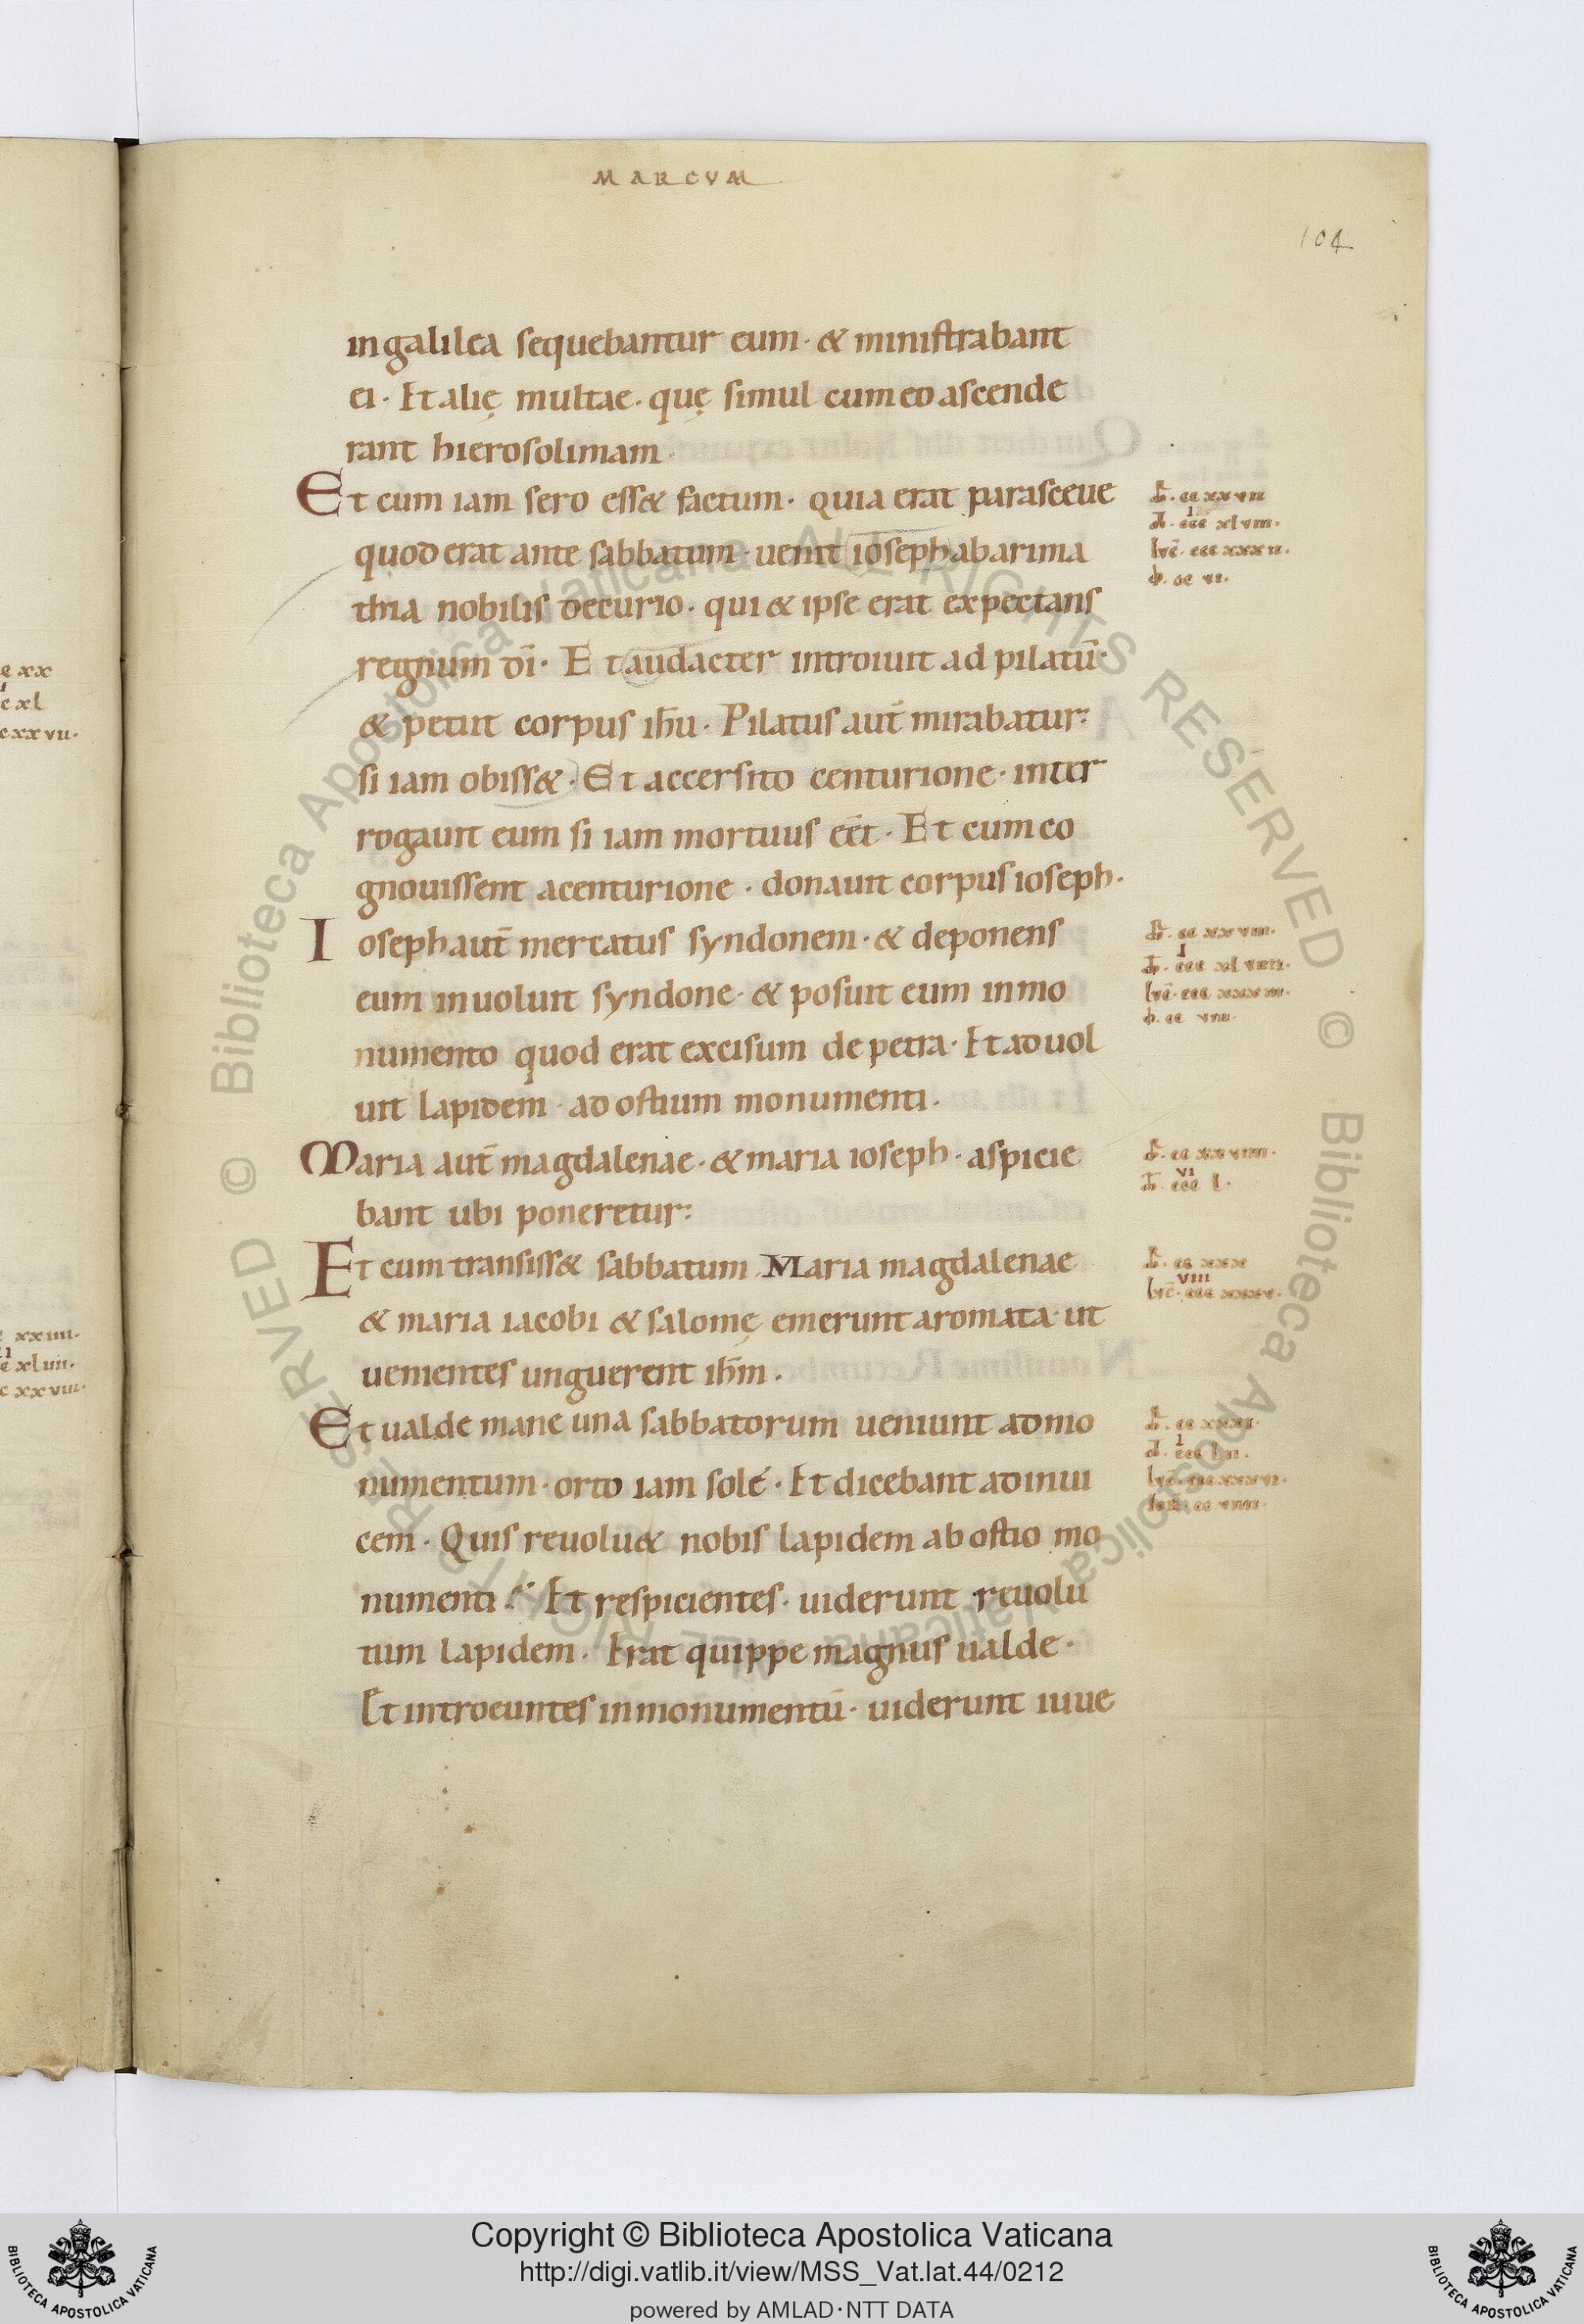 MARCVM
104
in galilea sequebantur eum· & ministrabant
ei· Et alię multae· quę simul cum eo ascende
rant hierosolimam·
Et cum iam sero ess& factum· quia erat parasceue
quod erat ante sabbatum· uenit ioseph abarima
thia nobilis decurio· qui & ipse erat expectans
regnum dī· Et audacter introiuit ad pilatū·
& petiit corpus ihū· Pilatus aut̄ mirabatur:
si iam obiss&· Et accersito centurione· inter
rogauit eum si iam mortuus eēt· Et cum co
gnouissent acenturione· donauit corpus ioseph·
Ioseph aut̄ mercatus syndonem· & deponens
eum inuoluit syndone· & posuit eum in mo
numento quod erat excisum de petra· Et aduol
uit lapidem· ad ostium monumenti·
Maria aut̄ magdalenae· & maria ioseph· aspicie
bant ubi poneretur:
Et cum transiss& sabbatum Maria magdalenae
& maria iacobi & salomę emerunt aromata· ut
uenientes unguerent ihm̄·
Et ualde mane una sabbatorum ueniunt ad mo
numentum· orto iam sole· Et dicebant adinui
cem· Quis reuolu& nobis lapidem ab ostio mo
numenti· Et respicientes· uiderunt reuolu
tum lapidem· Erat quippe magnus ualde·
Et introeuntes in monumentū· uiderunt iuue
Copyright © Biblioteca Apostolica Vaticana
http://digi.vatlib.it/view/MSS_Vat.lat.44/0212
powered by AMLAD·NTT DATA
BIBLIOTECA APOSTOLICA VATICANA
BIBLIOTECA APOSTOLICA VATICANA
© Biblioteca Apostolica Vaticana ALL RIGHTS RESERVED
© Biblioteca Apostolica Vaticana ALL RIGHTS RESERVED